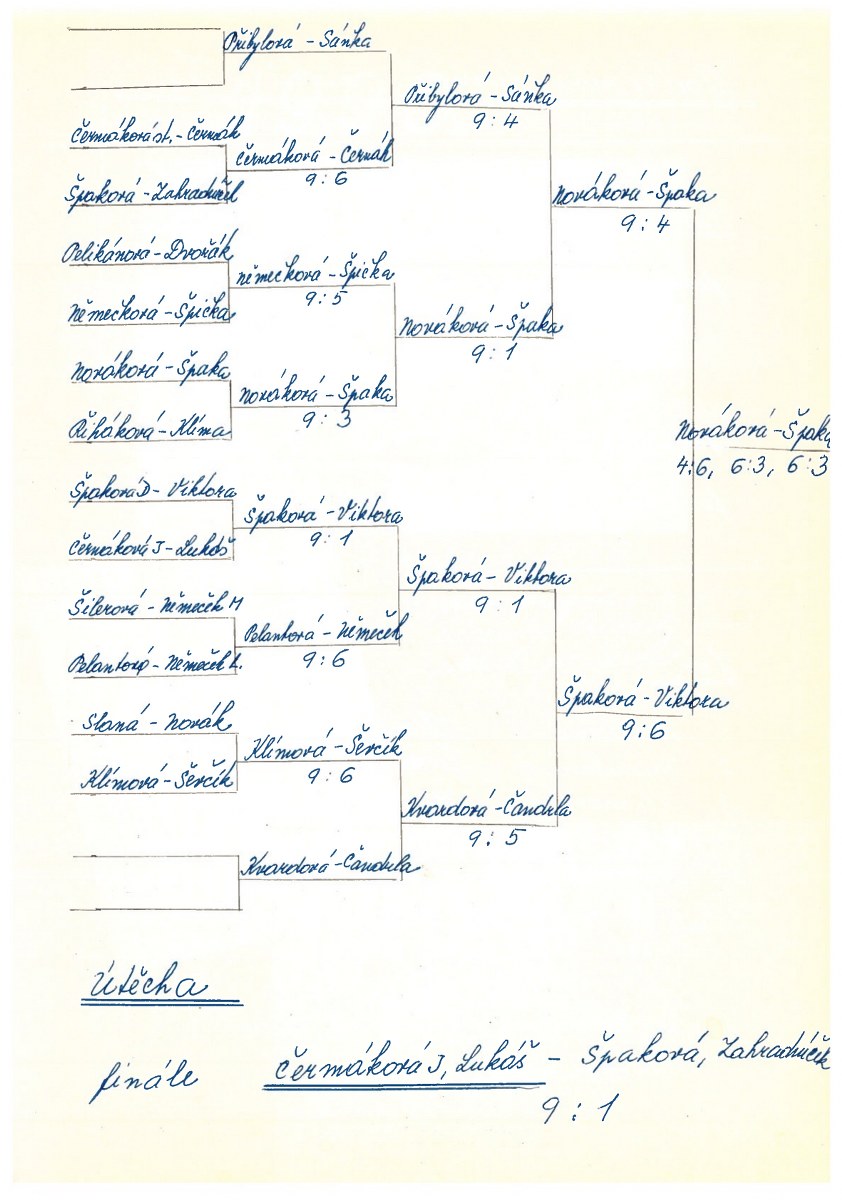 Přibylová - Sáňka
Přibylová - Sáňka
9 : 4
Čermáková st. - Čermák
Čermáková - Čermák
9 : 6
Špaková - Zahradníček
Nováková - Špaka
9 : 4
Pelikánová - Dvořák
Němečková - Špička
9 : 5
Němečková - Špička
Nováková - Špaka
9 : 1
Nováková - Špaka
Nováková - Špaka
9 : 3
Řiháková - Klíma
Nováková - Špaka
4:6, 6:3, 6:3
Špaková D - Viktora
Špaková - Viktora
9 : 1
Čermáková J - Lukáš
Špaková - Viktora
9 : 1
Šilerová - Němeček M
Pelantová - Němeček
9 : 6
Pelantová - Němeček L.
Špaková - Viktora
9 : 6
Slaná - Novák
Klímová - Šerčík
9 : 6
Klímová - Šerčík
Kvardová - Čandrla
9 : 5
Kvardová - Čandrla
Útěcha
finále Čermáková J, Lukáš - Špaková, Zahradníček
9 : 1